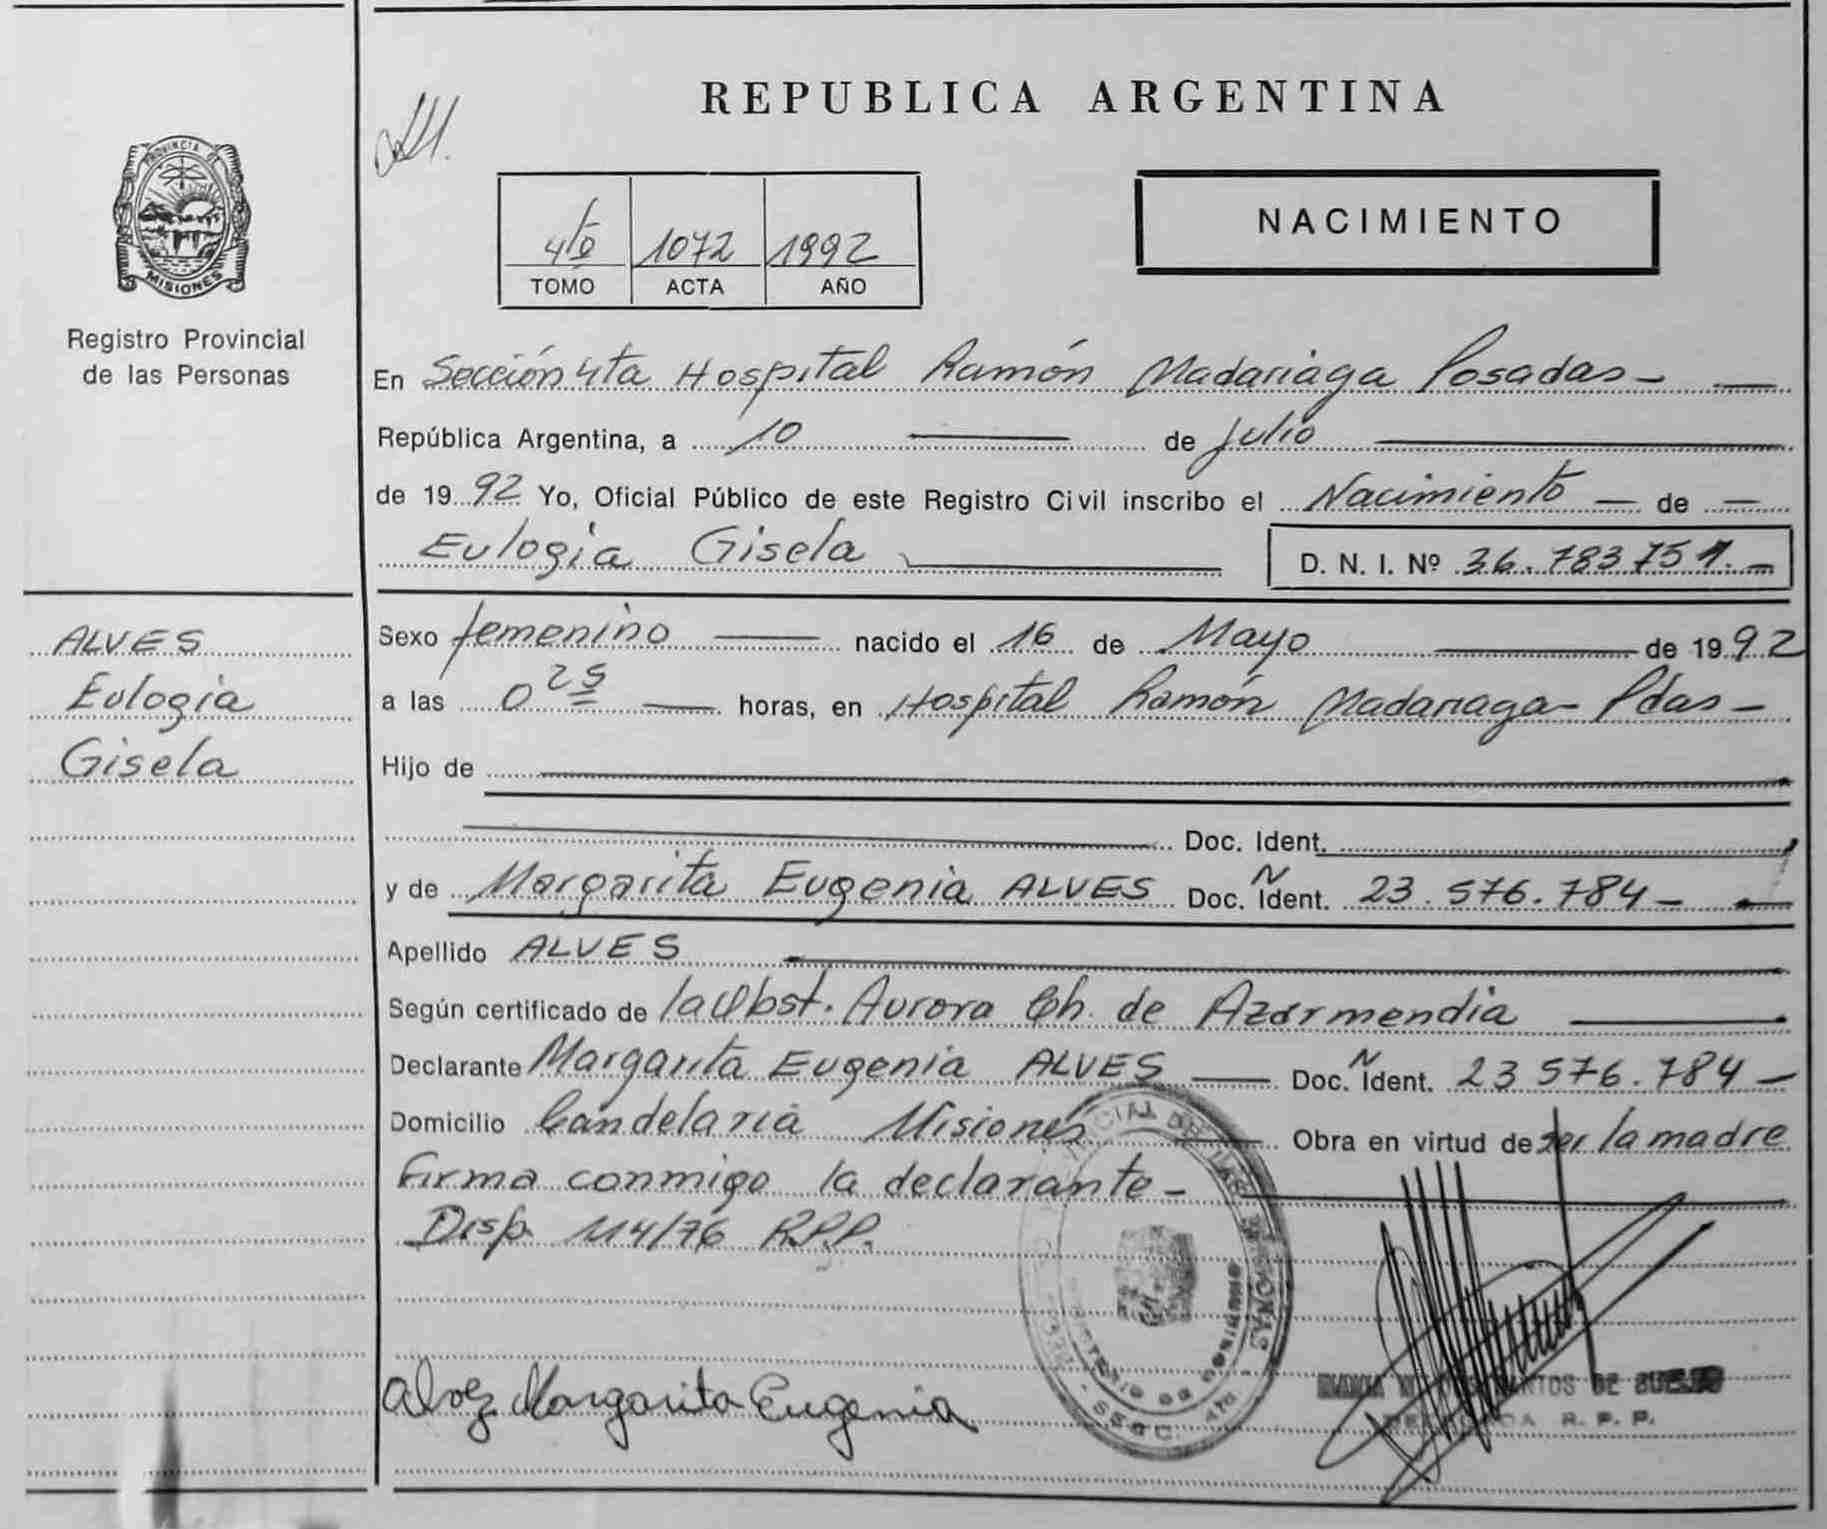 REPUBLICA ARGENTINA
PROVINCIA DE MISIONES
Registro Provincial
de las Personas
4to 1072 1992
TOMO ACTA AÑO
NACIMIENTO
En Sección 4ta Hospital Ramón Madariaga Posadas -
República Argentina, a 10 de julio
de 1992 Yo, Oficial Público de este Registro Civil inscribo el Nacimiento - de -
Eulogia Gisela D. N. I. Nº 36.783.751.-
ALVES
Eulogia
Gisela
Sexo femenino nacido el 16 de Mayo de 1992
a las 0 25 horas, en Hospital Ramón Madariaga - Pdas -
Hijo de
Doc. Ident.
y de Margarita Eugenia ALVES Doc. N Ident. 23.576.784 -
Apellido ALVES
Según certificado de la Obst. Aurora Ch. de Azarmendia
Declarante Margarita Eugenia ALVES Doc. N Ident. 23 576.784 -
Domicilio Candelaria Misiones Obra en virtud de ser la madre
Firma conmigo la declarante -
Disp. 114/76 R.P.P.
Alvez Margarita Eugenia
DE
R. P. P.